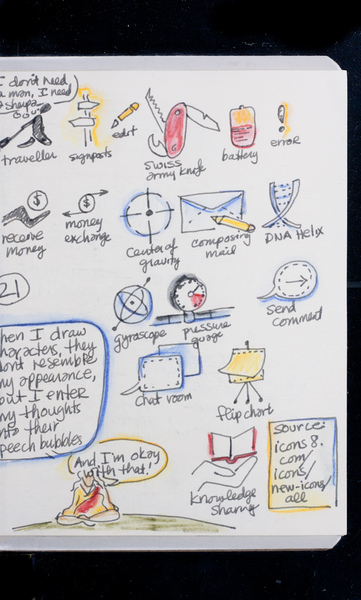 I don't need
a man, I need
a sherpa
traveller
signposts
edit
swiss
army knife
battery
error
$
receive
money
$
money
exchange
center of
gravity
composing
mail
DNA Helix
21
gyroscope
pressure
guage
send
comment
hen I draw
characters, they
don't resemble
my appearance,
but I enter
my thoughts
into their
speech bubbles
chat room
flip chart
And I'm okay
with that!
knowledge
sharing
source:
icons 8.
com/
icons/
new-icons/
all